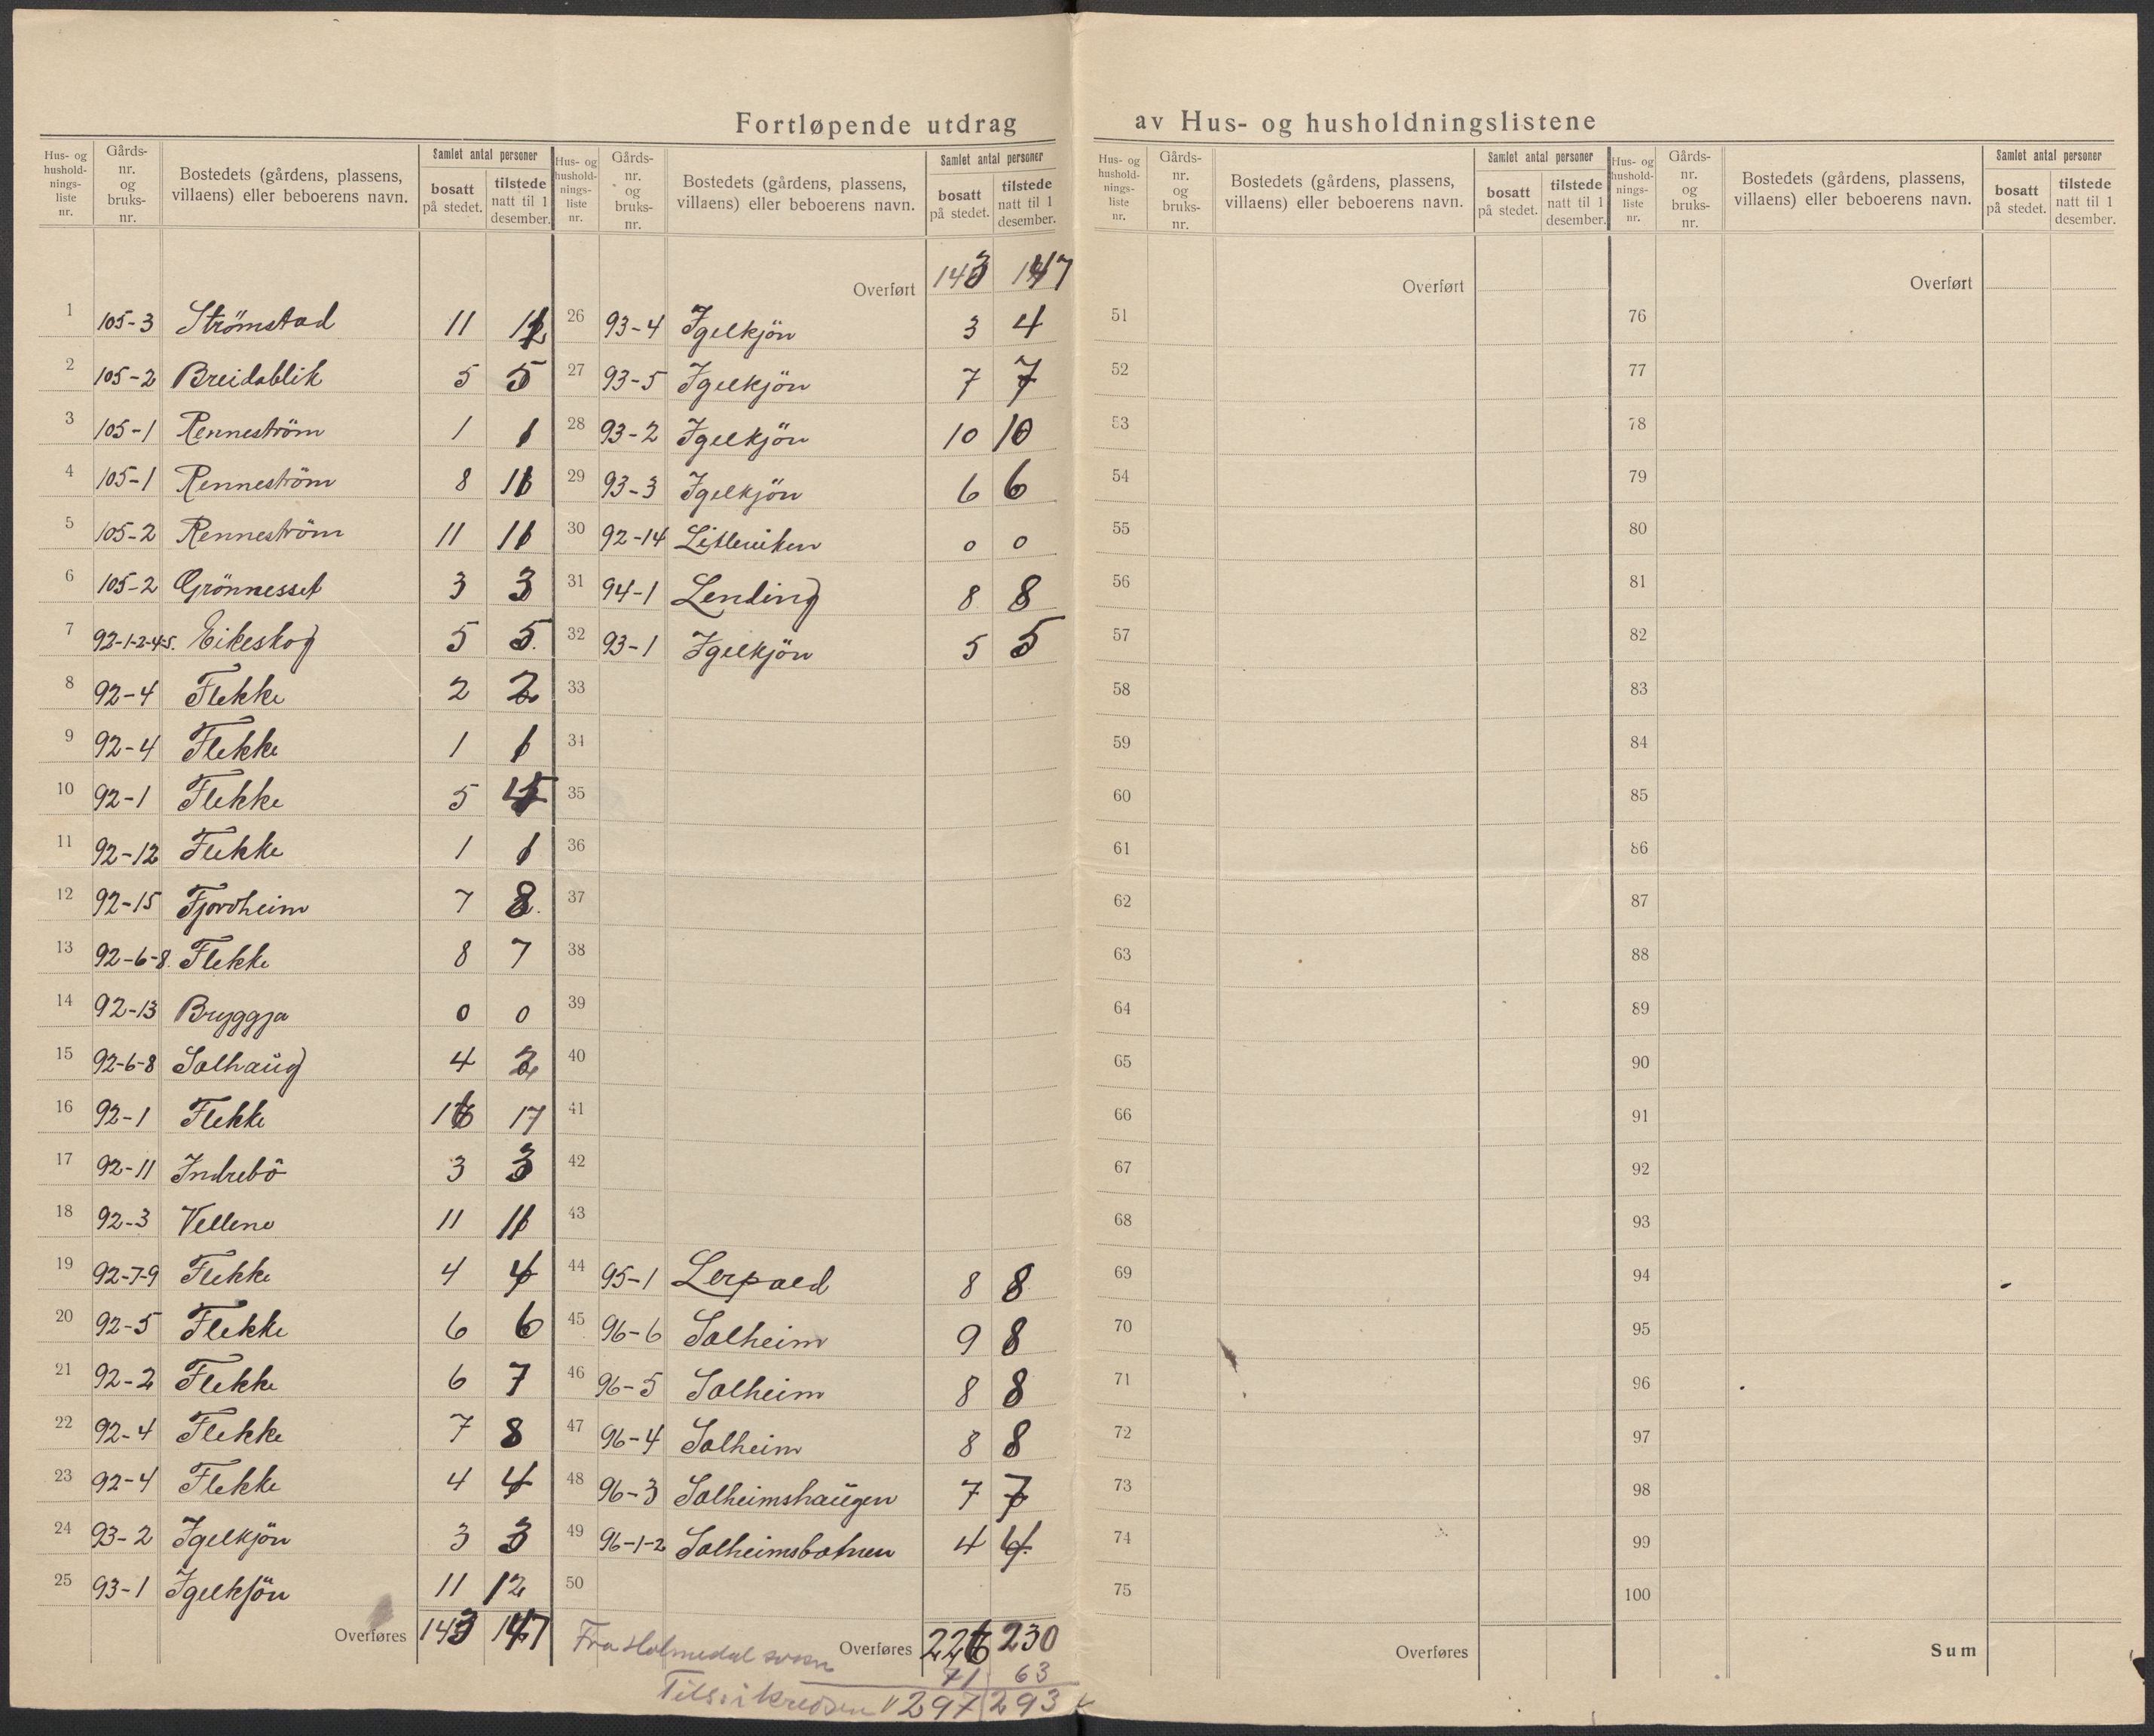 Fortløpende utdrag av Hus- og husholdningslistene
Hus- og hushold-nings-liste nr. Gårds-nr. og bruks-nr. Bostedets (gårdens, plassens, villaens) eller beboerens navn. Samlet antal personer bosatt på stedet. tilstede natt til 1 desember.
1 105-3 Strömstad 11 12
2 105-2 Breidablik 5 5
3 105-1 Renneström 1 1
4 105-1 Renneström 8 11
5 105-2 Renneström 11 11
6 105-2 Grönnesset 3 3
7 92-1-2-4-5. Eikeskog 5 5.
8 92-4 Flekke 2 2
9 92-4 Flekke 1 1
10 92-1 Flekke 5 5
11 92-12 Flekke 1 1
12 92-15 Fjordheim 7 8.
13 92-6-8. Flekke 8 7
14 92-13 Bryggja 0 0
15 92-6-8 Solhaŭg 4
16 92-1 Flekke 16 17
17 92-11 Indrebö 3 3
18 92-3 Vellene 11 11
19 92-7-9 Flekke 4 4
20 92-5 Flekke 6 6
21 92-2 Flekke 6 7
22 92-4 Flekke 7 8
23 92-4 Flekke 4 4
24 93-2 Igelkjön 3 3
25 93-1 Igelkjön 11 12
Overføres 143 147
Hus- og hushold-nings-liste nr. Gårds-nr. og bruks-nr. Bostedets (gårdens, plassens, villaens) eller beboerens navn. Samlet antal personer bosatt på stedet. tilstede natt til 1 desember.
Overført 143 147
26 93-4 Igelkjön 3 4
27 93-5 Igelkjön 7 7
28 93-2 Igelkjön 10 10
29 93-3 Igelkjön 6 6
30 92-14 Litleviken 0 0
31 94-1 Lending 8 8
32 93-1 Igelkjön 5 5
33
34
35
36
37
38
39
40
41
42
43
44 95-1 Lerpold 8 8
45 96-6 Solheim 9 8
46 96-5 Solheim 8 8
47 96-4 Solheim 8 8
48 96-3 Solheimshaŭgen 7 7
49 96-1-2 Solheimsbotnen 4 4.
50
Overføres 226 230
Fra Holmedal sogn 71 63
297 293
Hus- og hushold-nings-liste nr. Gårds-nr. og bruks-nr. Bostedets (gårdens, plassens, villaens) eller beboerens navn. Samlet antal personer bosatt på stedet. tilstede natt til 1 desember.
Overført
51
52
53
54
55
56
57
58
59
60
61
62
63
64
65
66
67
68
69
70
71
72
73
74
75
Overføres
Hus- og hushold-nings-liste nr. Gårds-nr. og bruks-nr. Bostedets (gårdens, plassens, villaens) eller beboerens navn. Samlet antal personer bosatt på stedet. tilstede natt til 1 desember.
Overført
76
77
78
79
80
81
82
83
84
85
86
87
88
89
90
91
92
93
94
95
96
97
98
99
100
Sum